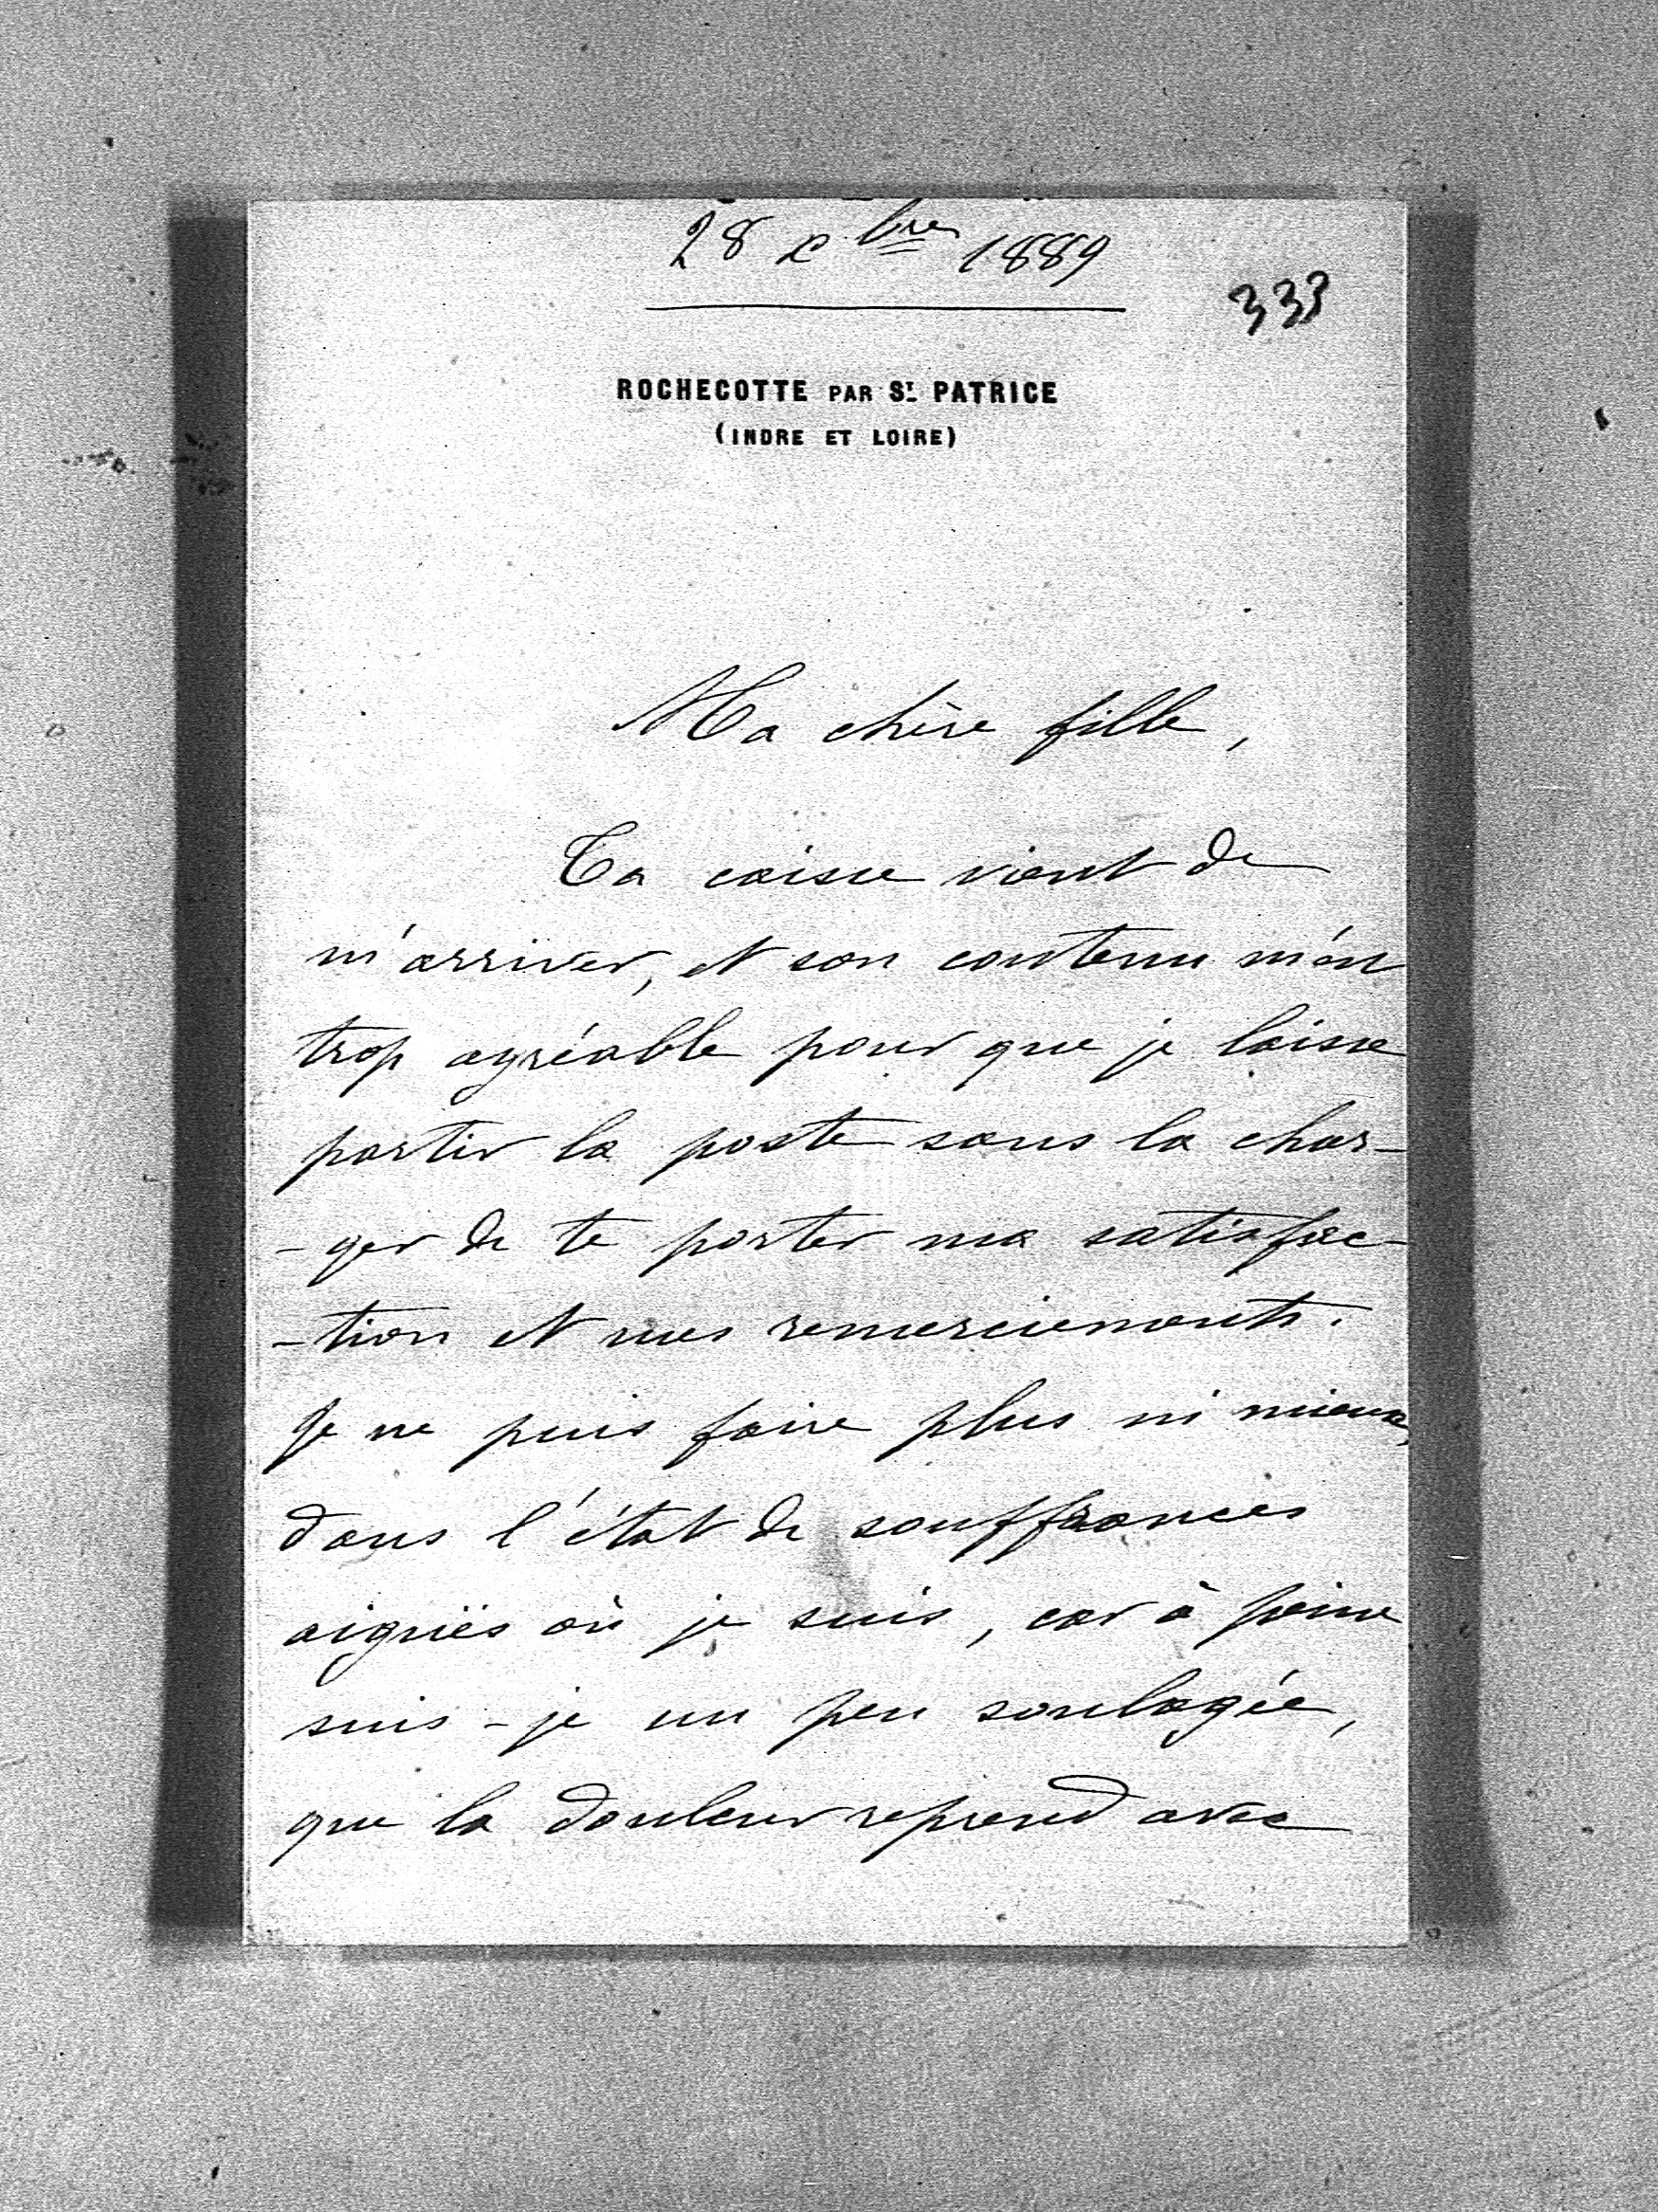 28 xbre 1889
333
ROCHECOTTE PAR ST. PATRICE
(INDRE ET LOIRE)
Ma chère fille,
Ta caisse vient de
m'arriver, et son contenu m'est
trop agréable pour que je laisse
partir la poste sans la char-
-ger de te porter ma satisfac-
-tion et mes remerciements.
Je ne puis faire plus ni mieux,
dans l'état de souffrances
aiguës où je suis, car à peine
suis-je un peu soulagée,
que la douleur reprend avec